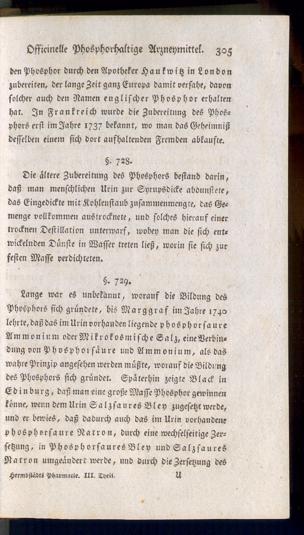 Officinelle Phosphorhaltige Arzneymittel. 305
den Phosphor durch den Apotheker Haukwitz in London
zubereiten, der lange Zeit ganz Europa damit versahe, davon
solcher auch den Namen englischer Phosphor erhalten
hat. In Frankreich wurde die Zubereitung des Phos-
phors erst im Jahre 1737 bekannt, wo man das Geheimniß
desselben einem sich dort aufhaltenden Fremden abkaufte.
§. 728.
Die ältere Zubereitung des Phosphors bestand darin,
daß man menschlichen Urin zur Syrupsdicke abdunstete,
das Eingedickte mit Kohlenstaub zusammenmengte, das Ge-
menge vollkommen austrocknete, und solches hierauf einer
trocknen Destillation unterwarf, wobey man die sich ent-
wickelnden Dünste in Wasser treten ließ, worin sie sich zur
festen Masse verdichteten.
§. 729.
Lange war es unbekannt, worauf die Bildung des
Phosphors sich gründete, bis Marggraf im Jahre 1740
lehrte, daß das im Urin vorhanden liegende phosphorsaure
Ammonium oder Mikrokosmische Salz, eine Verbin-
dung von Phosphorsäure und Ammonium, als das
wahre Prinzip angesehen werden müßte, worauf die Bildung
des Phosphors sich gründet. Späterhin zeigte Black in
Edinburg, daß man eine große Masse Phosphor gewinnen
könne, wenn dem Urin Salzsaures Bley zugesetzt werde,
und er bewies, daß dadurch auch das im Urin vorhandene
phosphorsaure Natron, durch eine wechselseitige Zer-
setzung, in Phosphorsaures Bley und Salzsaures
Natron umgeändert werde, und durch die Zersetzung des
Hermbstädts Pharmacie. III. Theil. U